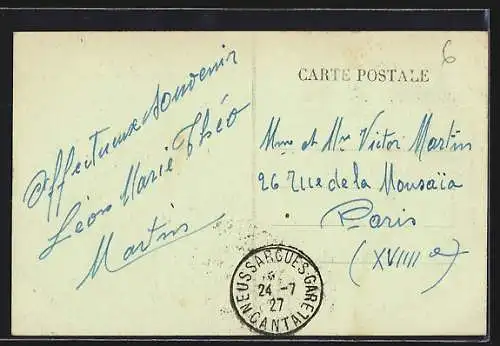 6
CARTE POSTALE
Affectueux souvenir
Léon Marie Théo
Martin
Mme et Mr Victor Martin
26 rue de la Mousaïa
Paris
(XVIIII e)
NEUSSARGUES-GARE
24 -7
27
CANTAL